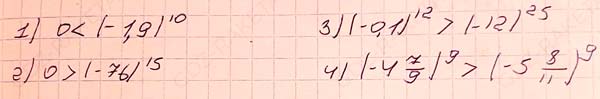 1) 0 < (-1,9)¹⁰
3) (-0,1)¹² > (-12)²⁵
2) 0 > (-76)¹⁵
4) (-4 7/9)⁹ > (-5 8/11)⁹